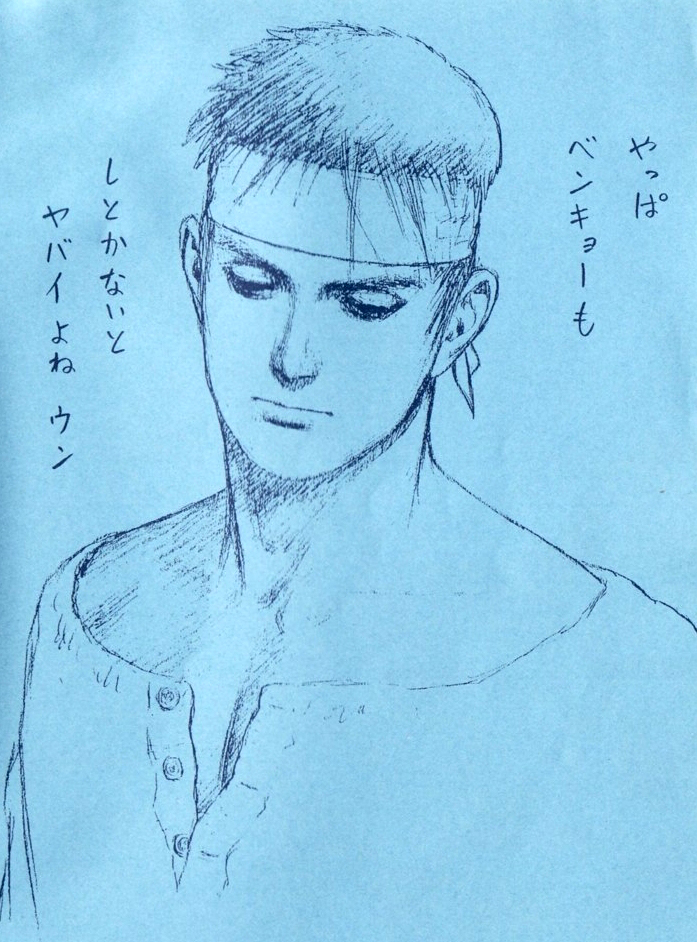 やっぱ
ベンキョーも
しとかないと
ヤバイよね ウン